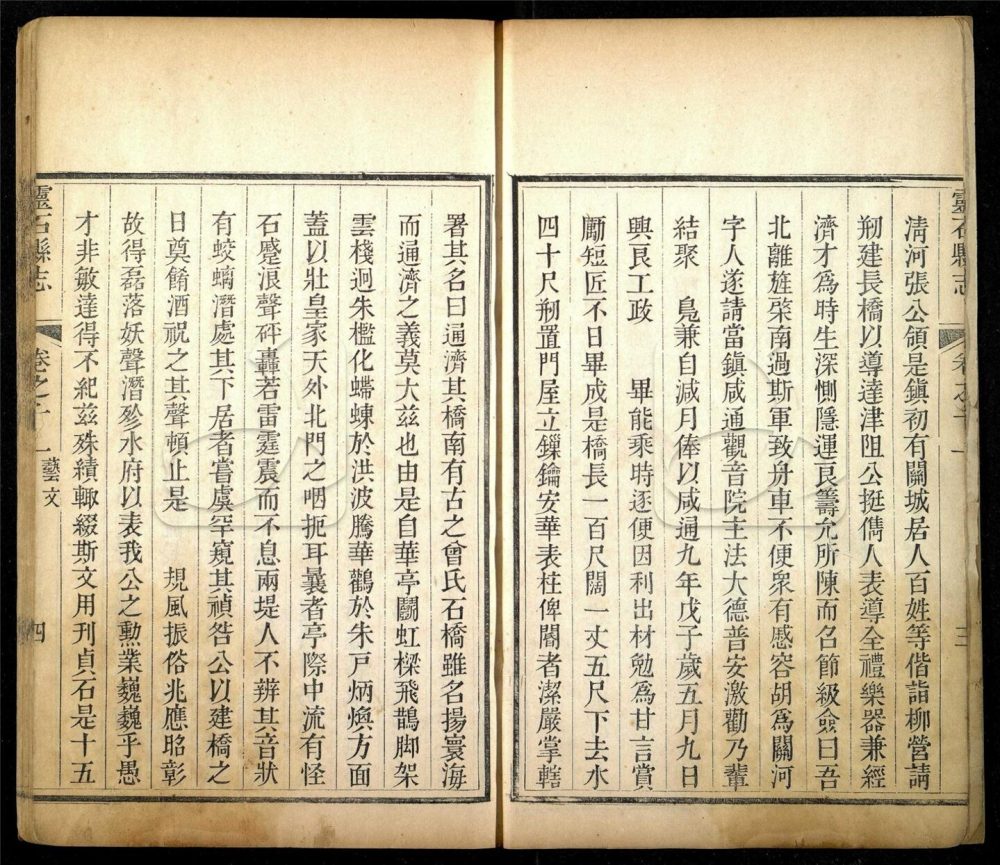 靈石縣志 卷之十 三
清河張公領是鎮初有關城居人百姓等偕詣柳營請
剏建長橋以導達津阻公挺儁人表導全禮樂器兼經
濟才爲時生深惻隱運良籌允所陳而名節級僉曰吾
北離旌棨南過斯軍致舟車不便衆有慼容胡爲關河
字人遂請當鎮咸通觀音院主法大德普安激勸乃輩
結聚 鳬兼自減月俸以咸通九年戊子歲五月九日
興良工政 畢能乘時逐便因利出材勉爲甘言賞
勵短匠不日畢成是橋長一百尺闊一丈五尺下去水
四十尺剏置門屋立鏁鑰安華表柱俾閽者潔嚴掌轄
署其名曰通濟其橋南有古之曾氏石橋雖名揚寰海
而通濟之義莫大兹也由是自華亭鬭虹樑飛鵲脚架
雲棧迥朱檻化螮蝀於洪波騰華鶴於朱戸炳煥方面
蓋以壯皇家天外北門之咽扼耳曩者亭際中流有怪
石蹙浪聲砰轟若雷霆震而不息兩堤人不辨其音狀
有蛟螭潛處其下居者嘗虞罕窺其禎咎公以建橋之
日奠餚酒祝之其聲頓止是 規風振俗兆應昭彰
故得磊落妖聲潛殄水府以表我公之勳業巍巍乎愚
才非敏達得不紀兹殊績輙綴斯文用刊貞石是十五
靈石縣志 卷之十一 藝文 四